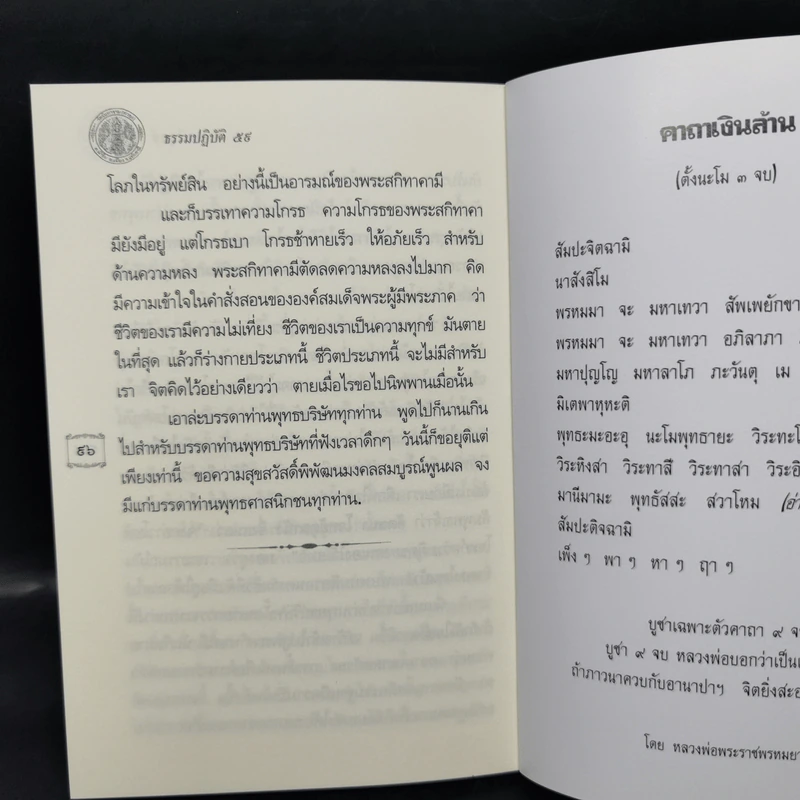 ธรรมปฏิบัติ ๕๙
โลภในทรัพย์สิน อย่างนี้เป็นอารมณ์ของพระสกิทาคามี
และก็บรรเทาความโกรธ ความโกรธของพระสกิทาคา
มียังมีอยู่ แต่โกรธเบา โกรธช้าหายเร็ว ให้อภัยเร็ว สำหรับ
ด้านความหลง พระสกิทาคามีตัดลดความหลงลงไปมาก คิด
มีความเข้าใจในคำสั่งสอนขององค์สมเด็จพระผู้มีพระภาค ว่า
ชีวิตของเรามีความไม่เที่ยง ชีวิตของเราเป็นความทุกข์ มันตาย
ในที่สุด แล้วก็ร่างกายประเภทนี้ ชีวิตประเภทนี้ จะไม่มีสำหรับ
เรา จิตคิดไว้อย่างเดียวว่า ตายเมื่อไรขอไปนิพพานเมื่อนั้น
เอาล่ะบรรดาท่านพุทธบริษัททุกท่าน พูดไปก็นานเกิน
ไปสำหรับบรรดาท่านพุทธบริษัทที่ฟังเวลาดึกๆ วันนี้ก็ขอยุติแต่
เพียงเท่านี้ ขอความสุขสวัสดิ์พิพัฒนมงคลสมบูรณ์พูนผล จง
มีแก่บรรดาท่านพุทธศาสนิกชนทุกท่าน.
๕๖
คาถาเงินล้าน
(ตั้งนะโม ๓ จบ)
สัมปะจิตฉามิ
นาสังสิโม
พรหมมา จะ มหาเทวา สัพเพยักขา
พรหมมา จะ มหาเทวา อภิลาภา
มหาปุญโญ มหาลาโภ ภะวันตุ เม
มิเตพาหุหะติ
พุทธะมะอะอุ นะโมพุทธายะ วิระทะโ
วิระหิงสา วิระทาสี วิระทาสา วิระอิ
มานีมามะ พุทธัสสะ สวาโหม (อ่า
สัมปะติจฉามิ
เพ็ง ๆ พา ๆ หา ๆ ฤา ๆ
บูชาเฉพาะตัวคาถา ๙ จบ
บูชา ๙ จบ หลวงพ่อบอกว่าเป็น
ถ้าภาวนาควบกับอานาปาฯ จิตยิ่งสะอ
โดย หลวงพ่อพระราชพรหมยา